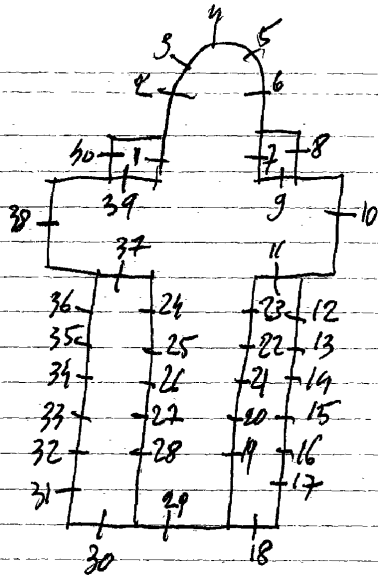 4
3 5
2 6
40 1 7 8
39 9
38 10
37 11
36 24 23 12
35 25 22 13
34 26 21 14
33 27 20 15
32 28 19 16
31 17
29
30 18